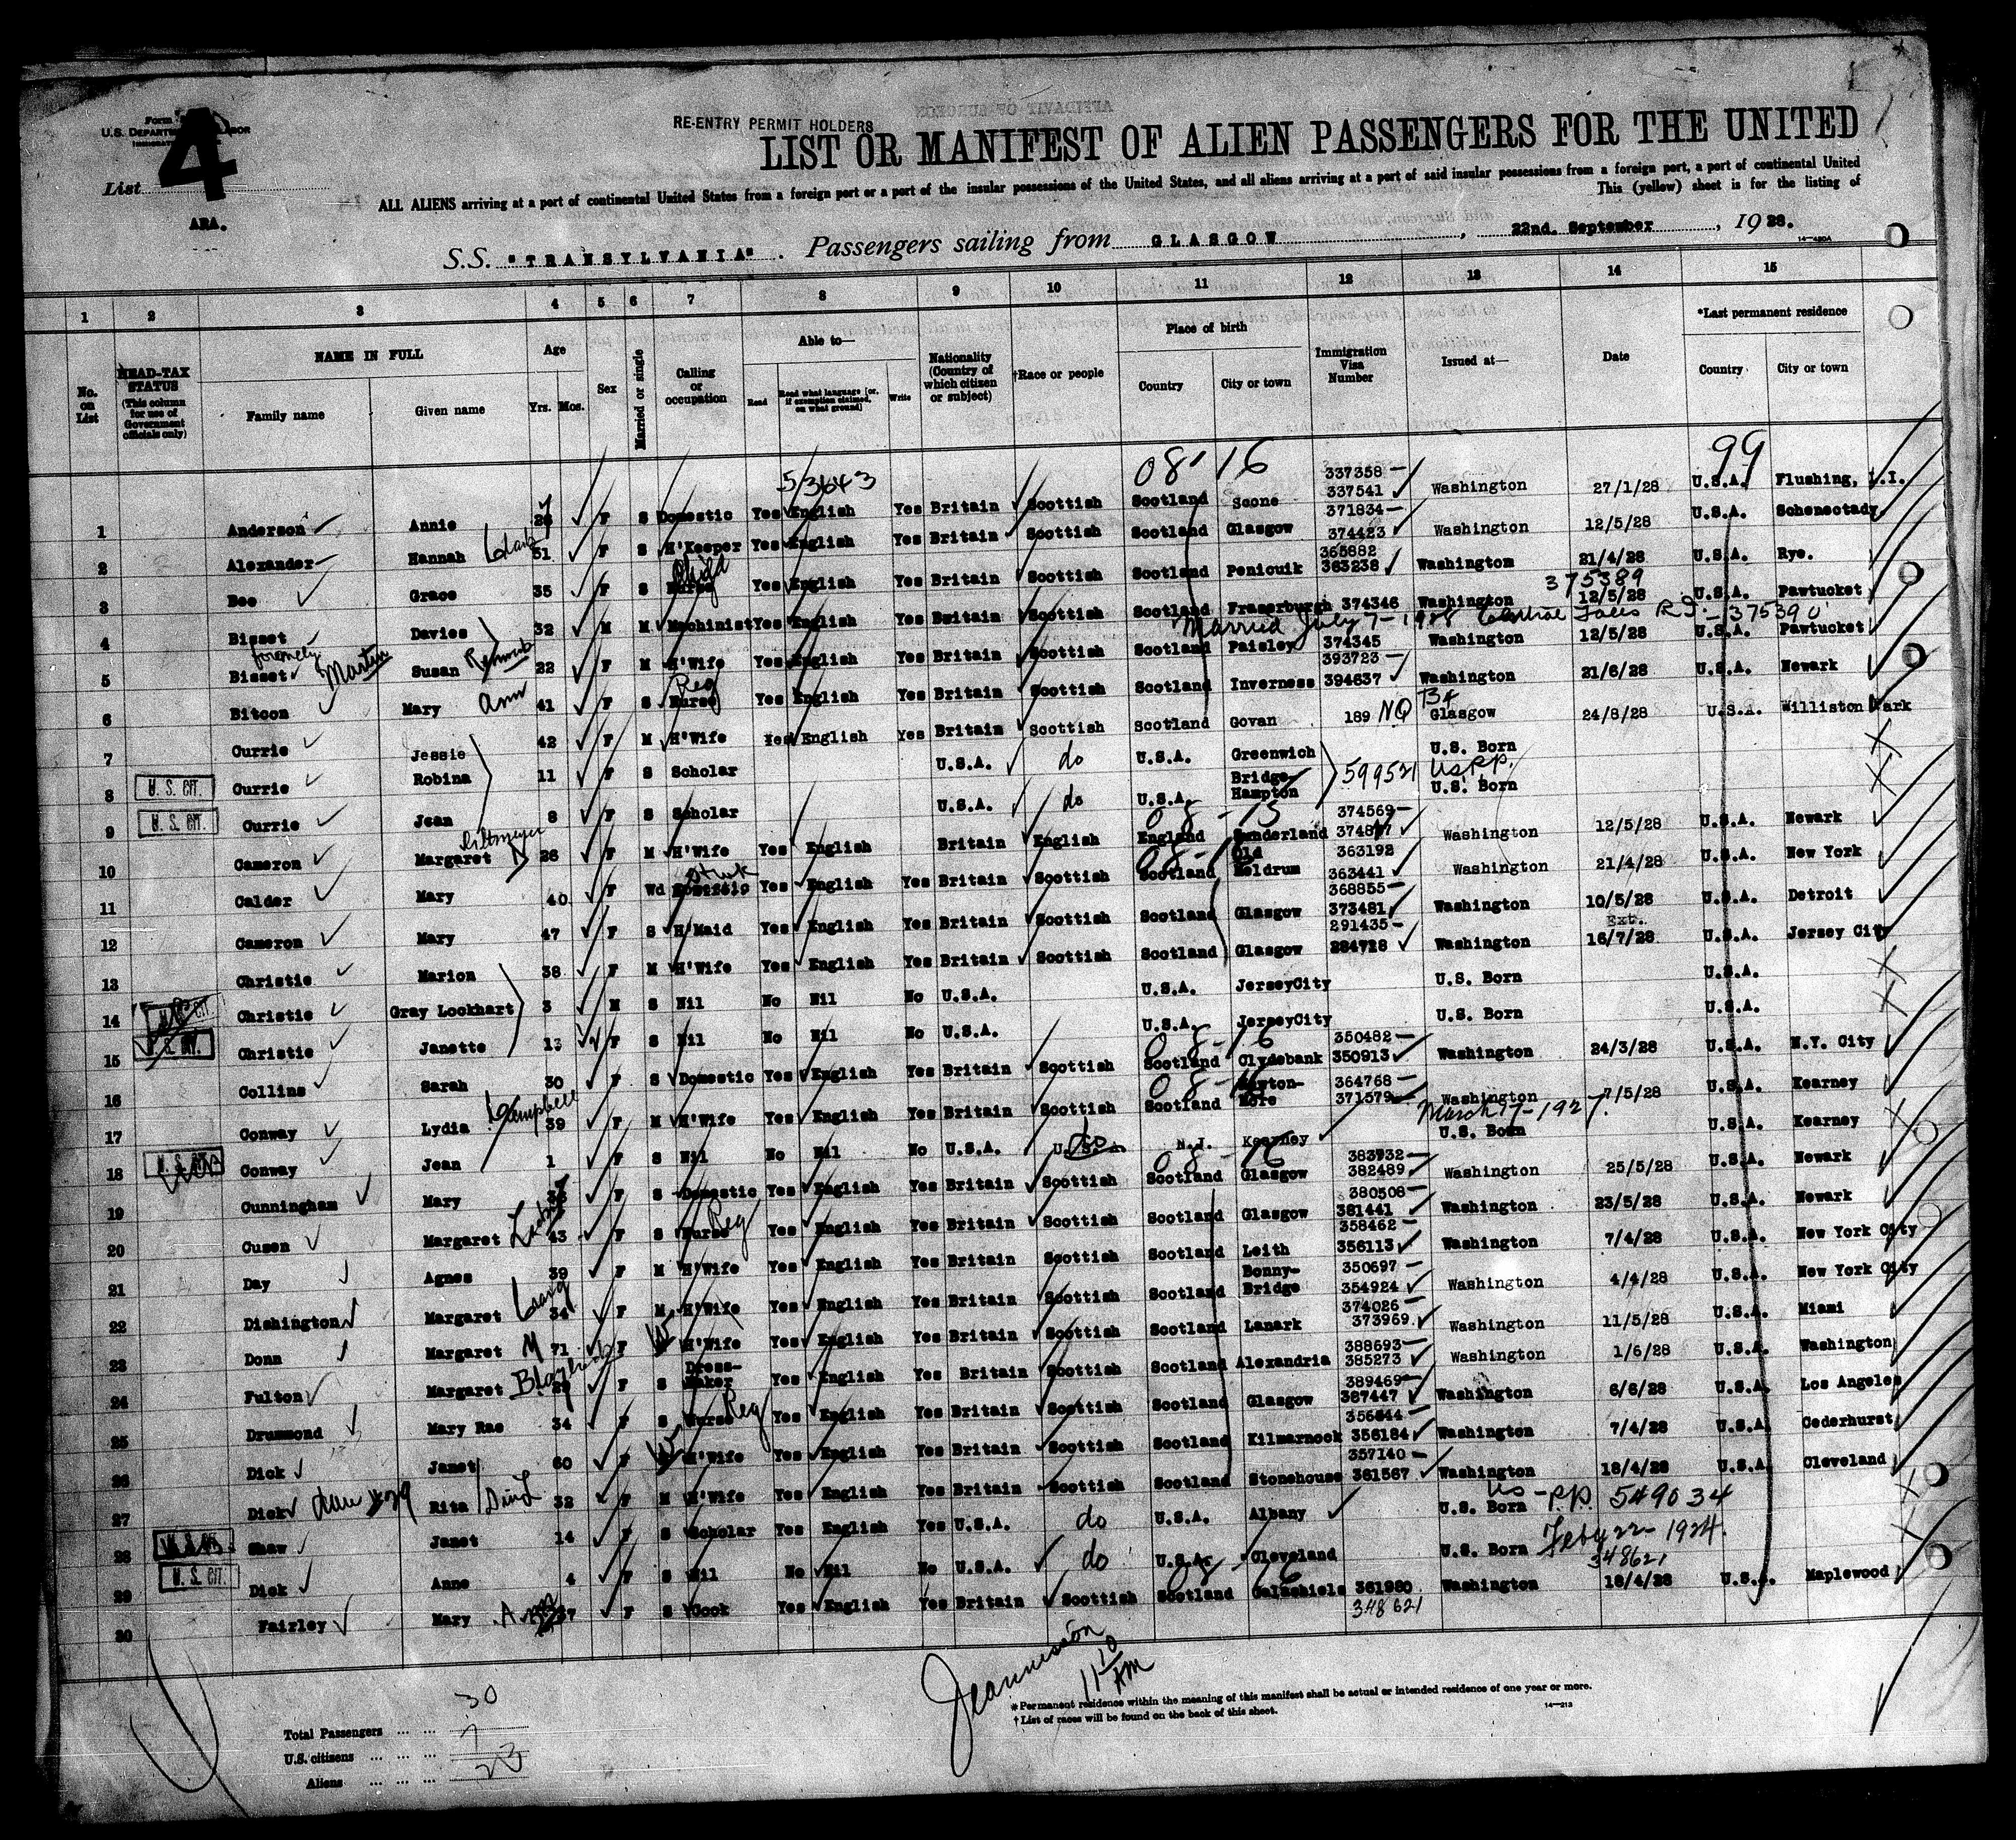 RE-ENTRY PERMIT HOLDERS
Form
U.S. DEPARTMENT LABOR
List 4
LIST OR MANIFEST OF ALIEN PASSENGERS FOR THE UNITED
ALL ALIENS arriving at a port of continental United States from a foreign port or a port of the insular possessions of the United States, and all aliens arriving at a port of said insular possessions from a foreign port, a port of continental United
This (yellow) sheet is for the listing of
ARA.
S.S. "TRANSYLVANIA". Passengers sailing from GLASGOW, 22nd. September, 1928.
14—420A
1 2 3 4 5 6 7 8 9 10 11 12 13 14 15
No. on List
HEAD-TAX STATUS (This column for use of Government officials only)
NAME IN FULL
Family name Given name
Age Yrs. Mos.
Sex
Married or single
Calling or occupation
Able to— Read Read what language [or, if exemption claimed, on what ground] Write
Nationality (Country of which citizen or subject)
†Race or people
Place of birth Country City or town
Immigration Visa Number
Issued at—
Date
*Last permanent residence Country City or town
53643 08-16 99
1 Anderson Annie F S Domestic Yes English Yes Britain Scottish Scotland Scone 337358 337541 Washington 27/1/28 U.S.A. Flushing, L.I.
2 Alexander Hannah 51 F S H'Keeper Yes English Yes Britain Scottish Scotland Glasgow 371834 374423 Washington 12/5/28 U.S.A. Schenectady
3 Bee Grace 35 F S Child Nurse Yes English Yes Britain Scottish Scotland Penicuik 365882 363238 Washington 21/4/28 U.S.A. Rye.
375389
4 Bisset Davies 32 M M Machinist Yes English Yes Britain Scottish Scotland Fraserburgh 374346 Washington 12/5/28 U.S.A. Pawtucket
Married July 7-1928 Central Falls R.I. - 375390
5 Bisset formerly Martin Susan 22 F M H'Wife Yes English Yes Britain Scottish Scotland Paisley 374345 Washington 12/5/28 U.S.A. Pawtucket
6 Bitcon Mary Ann 41 F S Reg Nurse Yes English Yes Britain Scottish Scotland Inverness 393723 394637 Washington 21/6/28 U.S.A. Newark
7 Currie Jessie 42 F M H'Wife Yes English Yes Britain Scottish Scotland Govan 189 NQ Glasgow 24/8/28 U.S.A. Williston Park
8 U.S. CIT. Currie Robina 11 F S Scholar U.S.A. do U.S.A. Greenwich U.S. Born
599521 U.S.P.P.
9 U.S. CIT. Currie Jean 8 F S Scholar U.S.A. do U.S.A. Bridge Hampton U.S. Born
08-15
10 Cameron Margaret 26 F M H'Wife Yes English Britain English England Sunderland 374569 Washington 12/5/28 U.S.A. Newark
11 Calder Mary 40 F Wd Domestic Yes English Yes Britain Scottish Scotland Old Meldrum 363192 363441 Washington 21/4/28 U.S.A. New York
12 Cameron Mary 47 F S H'Maid Yes English Yes Britain Scottish Scotland Glasgow 368855 373481 Washington 10/5/28 U.S.A. Detroit
13 Christie Marion 38 F M H'Wife Yes English Yes Britain Scottish Scotland Glasgow 291435 284728 Washington Ext. 16/7/28 U.S.A. Jersey City
14 Christie Gray Lockhart 3 M S Nil No Nil No U.S.A. U.S.A. JerseyCity U.S. Born U.S.A.
15 Christie Janette 13 F S Nil No Nil No U.S.A. U.S.A. JerseyCity U.S. Born U.S.A.
08-16
16 Collins Sarah 30 F S Domestic Yes English Yes Britain Scottish Scotland Clydebank 350482 350913 Washington 24/3/28 U.S.A. N.Y. City
17 Conway Lydia Campbell 39 F M H'Wife Yes English Yes Britain Scottish Scotland 364768 371579 Washington 7/5/28 U.S.A. Kearney
March 17-1927.
18 Conway Jean 1 F S Nil No Nil No U.S.A. N.J. Kearney U.S. Born U.S.A. Kearney
08-16
19 Cunningham Mary F S Domestic Yes English Yes Britain Scottish Scotland Glasgow 383932 382489 Washington 25/5/28 U.S.A. Newark
20 Cusen Margaret 43 F S Nurse Reg Yes English Yes Britain Scottish Scotland Glasgow 380508 381441 Washington 23/5/28 U.S.A. Newark
21 Day Agnes 39 F M H'Wife Yes English Yes Britain Scottish Scotland Leith 358462 356113 Washington 7/4/28 U.S.A. New York City
22 Dishington Margaret Laing 34 F M H'Wife Yes English Yes Britain Scottish Scotland Bonny-Bridge 350697 354924 Washington 4/4/28 U.S.A. New York City
23 Donn Margaret M 71 F W H'Wife Yes English Yes Britain Scottish Scotland Lanark 374026 373969 Washington 11/5/28 U.S.A. Miami
24 Fulton Margaret F S Dress-Maker Yes English Yes Britain Scottish Scotland Alexandria 388693 385273 Washington 1/6/28 U.S.A. Washington
25 Drummond Mary Rae 34 F S Nurse Reg Yes English Yes Britain Scottish Scotland Glasgow 389469 387447 Washington 6/6/28 U.S.A. Los Angeles
26 Dick Janet 60 F W H'Wife Yes English Yes Britain Scottish Scotland Kilmarnock 356844 356184 Washington 7/4/28 U.S.A. Cederhurst
27 Dick Rita 32 F M H'Wife Yes English Yes Britain Scottish Scotland Stonehouse 357140 361567 Washington 18/4/28 U.S.A. Cleveland
28 Shaw Janet 14 F S Scholar Yes English Yes U.S.A. do U.S.A. Albany U.S. Born US-P.P. 549034
29 U.S. CIT. Dick Anne 4 F S Nil No Nil No U.S.A. do U.S.A. Cleveland U.S. Born Feby 22-1924.
08-16 348621
30 Fairley Mary Ann F S Cook Yes English Yes Britain Scottish Scotland Galashiels 361980 Washington 18/4/28 U.S.A. Maplewood
348621
11 10 AM
*Permanent residence within the meaning of this manifest shall be actual or intended residence of one year or more.
†List of races will be found on the back of this sheet.
14—213
Total Passengers ... ... 30
U.S. citizens ... ... ... 7
Aliens ... ... ... 23